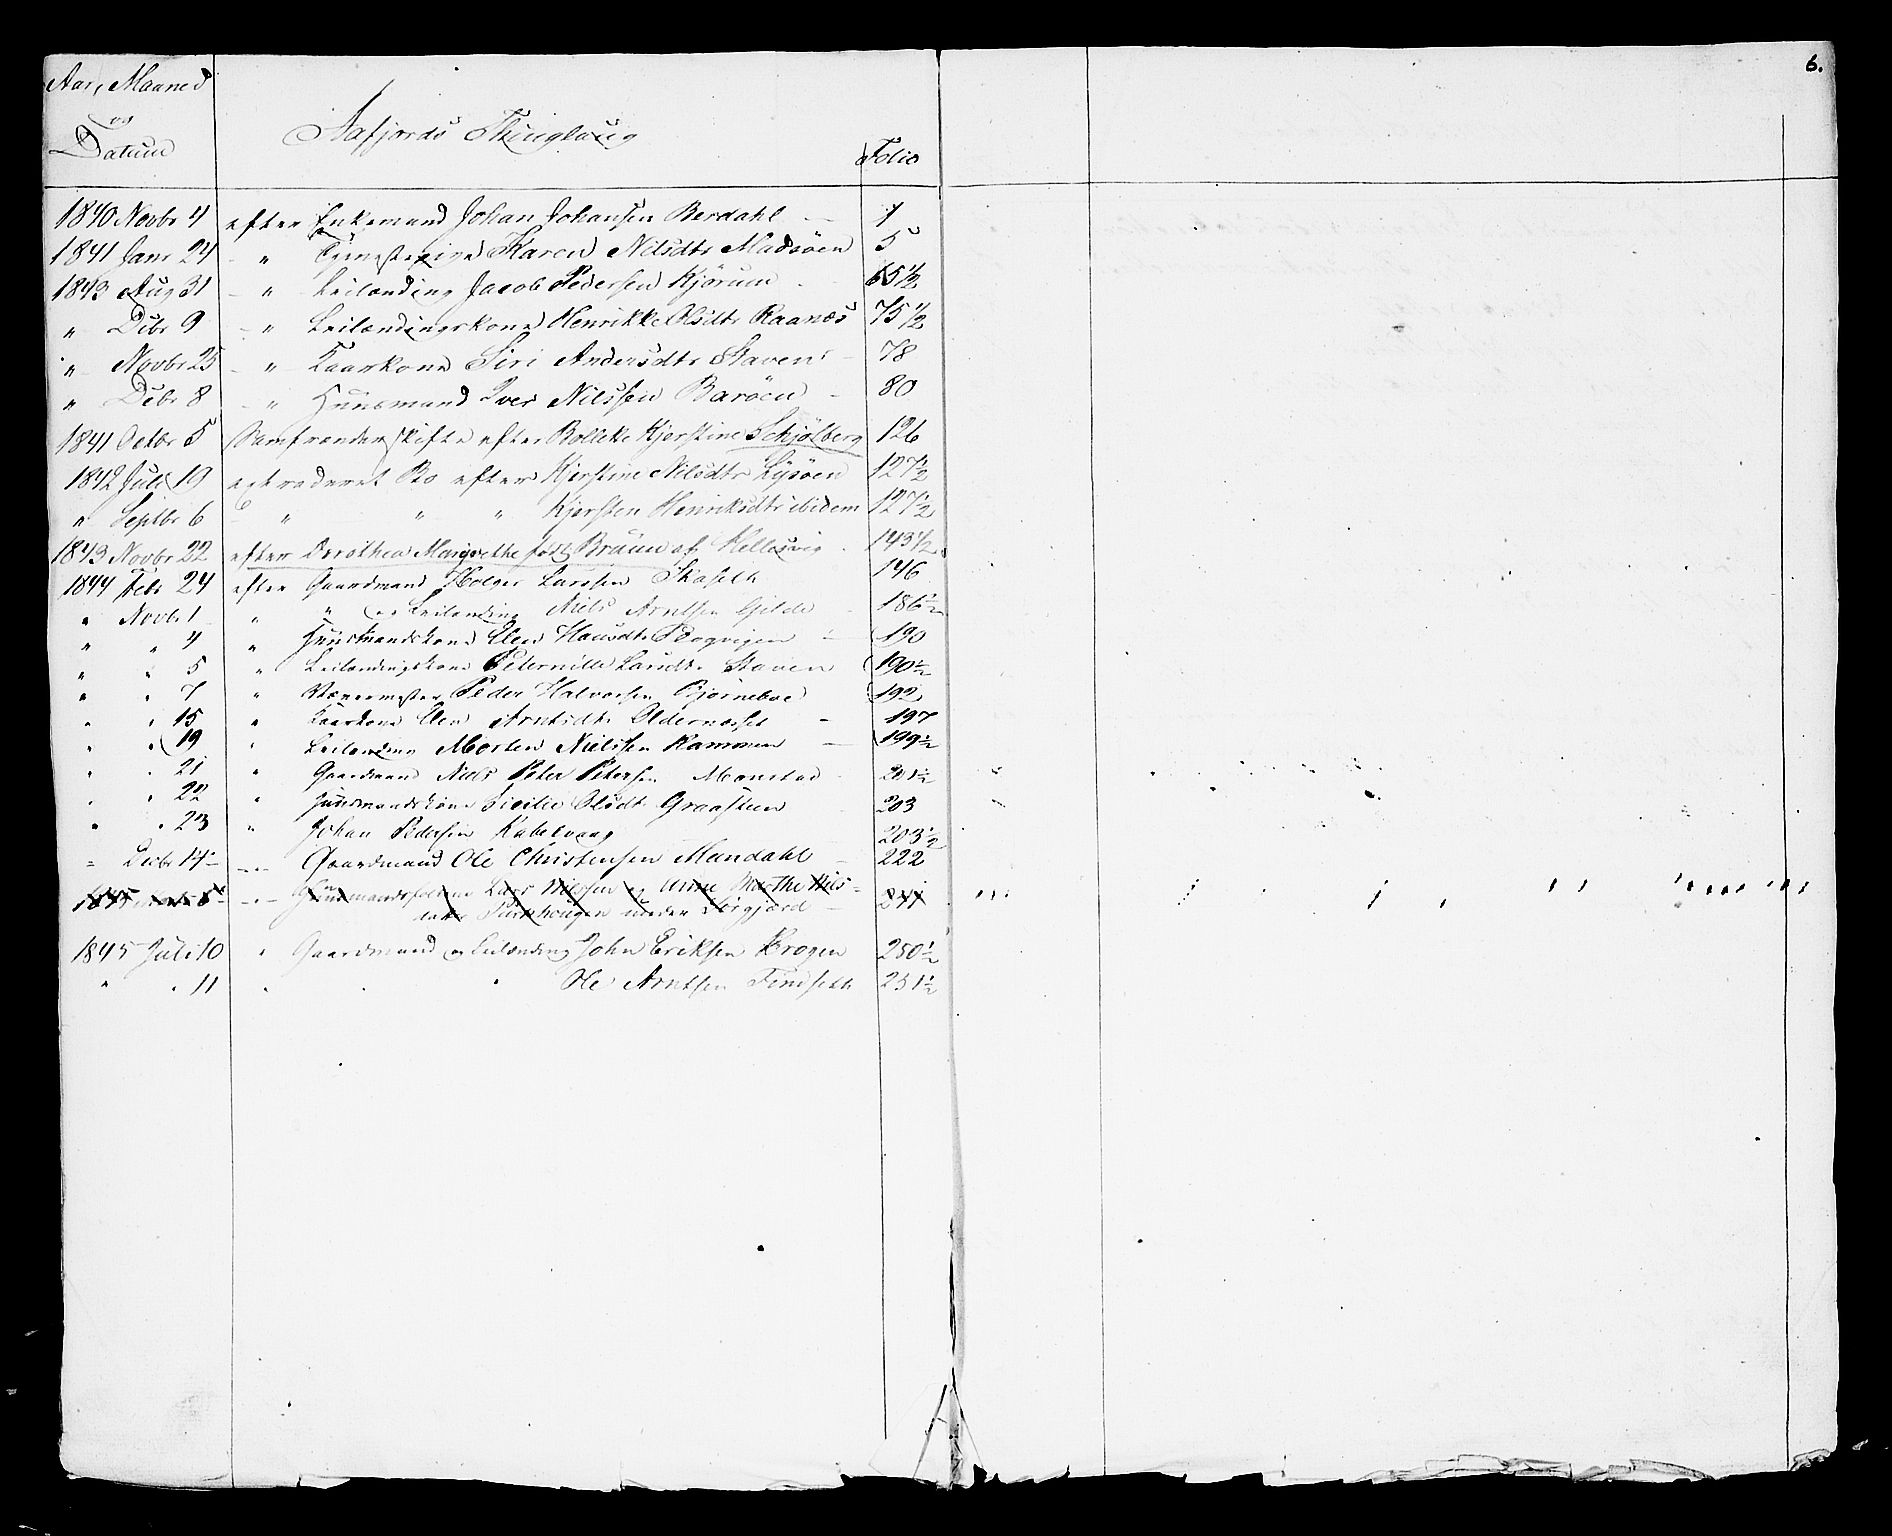 6.
Aar, Maaned
og
Datum
Aafjords Thinglaug
Folio
1840 Novbr 4 efter Enkemand Johan Johansen Berdahl — 1
1841 Janr 24 - " Tjenestepige Karen Nilsdtr Madsöen 5
1843 Aug 31 - " Leilænding Jacob Pedersen Kjörum - 65½
" Dcbr 9 - " Leilændingskone Henrikke Olsdtr Raanæs 75½
" Novbr 25 - " Kaarkone Siri Andersdtr Staven - 78
" Dcbr 8 - " Huusmand Iver Nilssen Baröen - 80
1841 Octbr 5 Samfrænderskifte efter Bolleke Kjerstine Schjölberg 126
1842 Juli 19 extraderet Bo efter Kjerstine Nilsdtr Lysöen 127½
" Septbr 6 " " " Kjersten Henriksdtr ibidem 127½
1843 Novbr 22 efter Dorothea Margrethe född Bruun af Hellesvig - 143½
1844 Febr 24 efter Gaardmand Holger Larssen Skaseth 146
" Novbr 1 " " og Leilænding Niels Arntsen Gilde 186½
" " 4 " Huusmandskone Elen Hansdtr Dogvigen - 190
" " 5 " Leilændingskone Peternille Larsdtr Staven 190½
" " 7 " Peder Halvorsen Bjørneboe 192
" " 15 " Kaarkone Elen Arntsdtr Oldernæsset - 197
" " 19 " Leilænding Morten Nielssen Rammen — 199½
" " 21 " Gaardmand Niels Peter Petersen Monstad 201½
" " 22 " Huusmandskone Sicilie Olsdtr Graasteen 203
" " 23 " Johan Pedersen Kabelvaag 203½
" Decbr 14 - " - Gaardmand Ole Christensen Mandahl - 222
1845 - " - Huusmandsfolkene Lars Nilssen og Anne Marthe Nils-
datr under Sörgjerd - 241
1845 Juli 10 " Gaardmand og Leilænding John Eriksen Krogen 250½
" " 11 " " " Ole Arntsen Findseth 251½